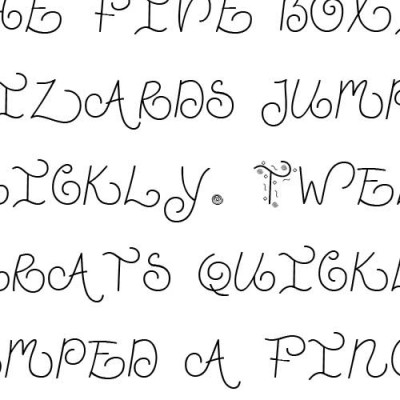 HE FIVE BOXI
IZARDS JUMP
ICKLY. TWEL
RATS QUICKL
MPED A FING